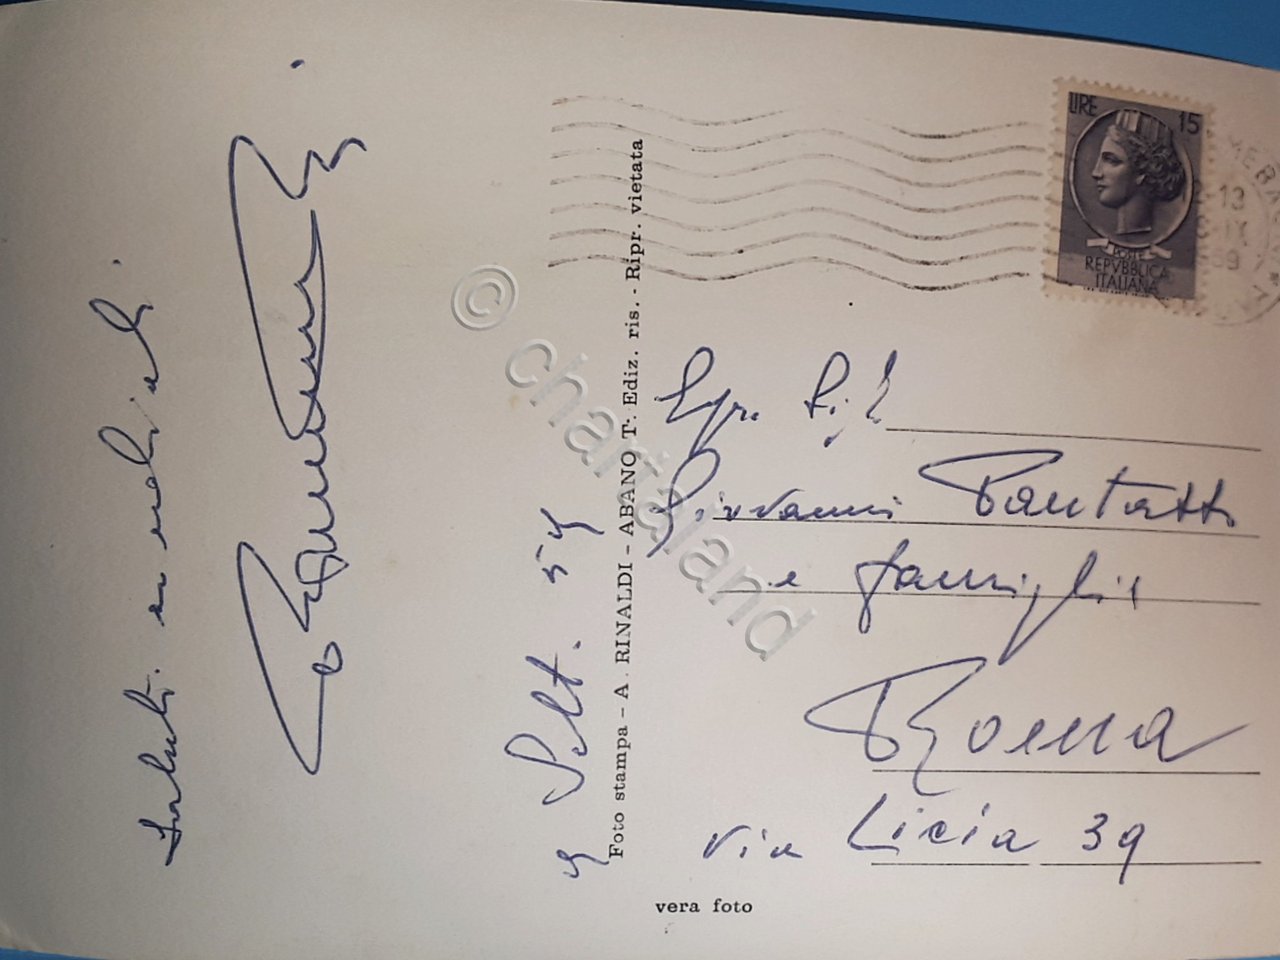 Saluti cordiali
9 Sett. 59
Foto stampa - A. RINALDI - ABANO T. Ediz. ris. - Ripr. vietata
vera foto
LIRE 15
POSTE
REPVBBLICA
ITALIANA
13
IX
Giovanni Pantatti
e famiglia
Roma
via Licia 39
© chartaland